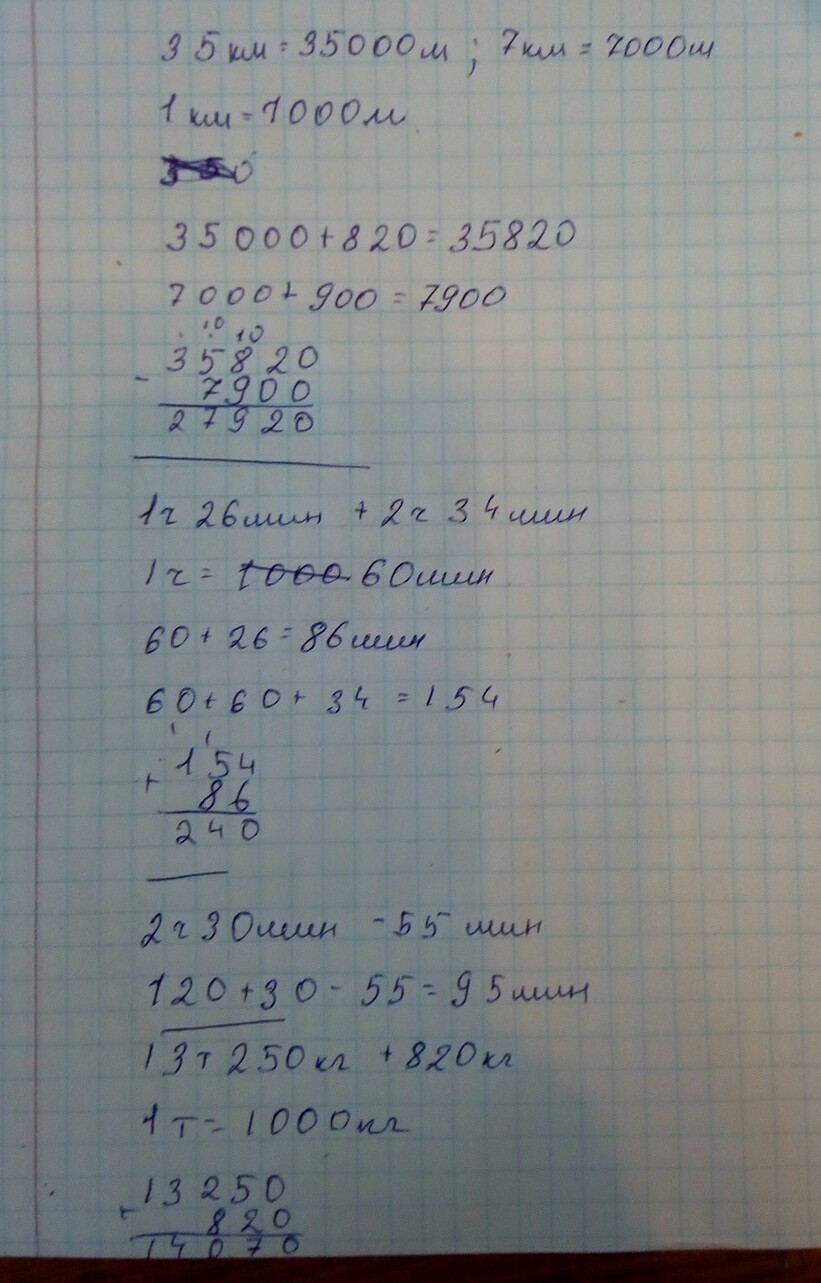 35км = 35000м ; 7км = 7000м
1 км = 1000м
35000 + 820 = 35820
7000 + 900 = 7900
10 10
35820
- 7900
27920
1ч 26мин + 2ч 34мин
1ч = 1000 60мин
60 + 26 = 86мин
60 + 60 + 34 = 154
1 1
154
+ 86
240
2ч 30мин - 55 мин
120 + 30 - 55 = 95мин
13т 250кг + 820кг
1т = 1000кг
13250
+ 820
14070